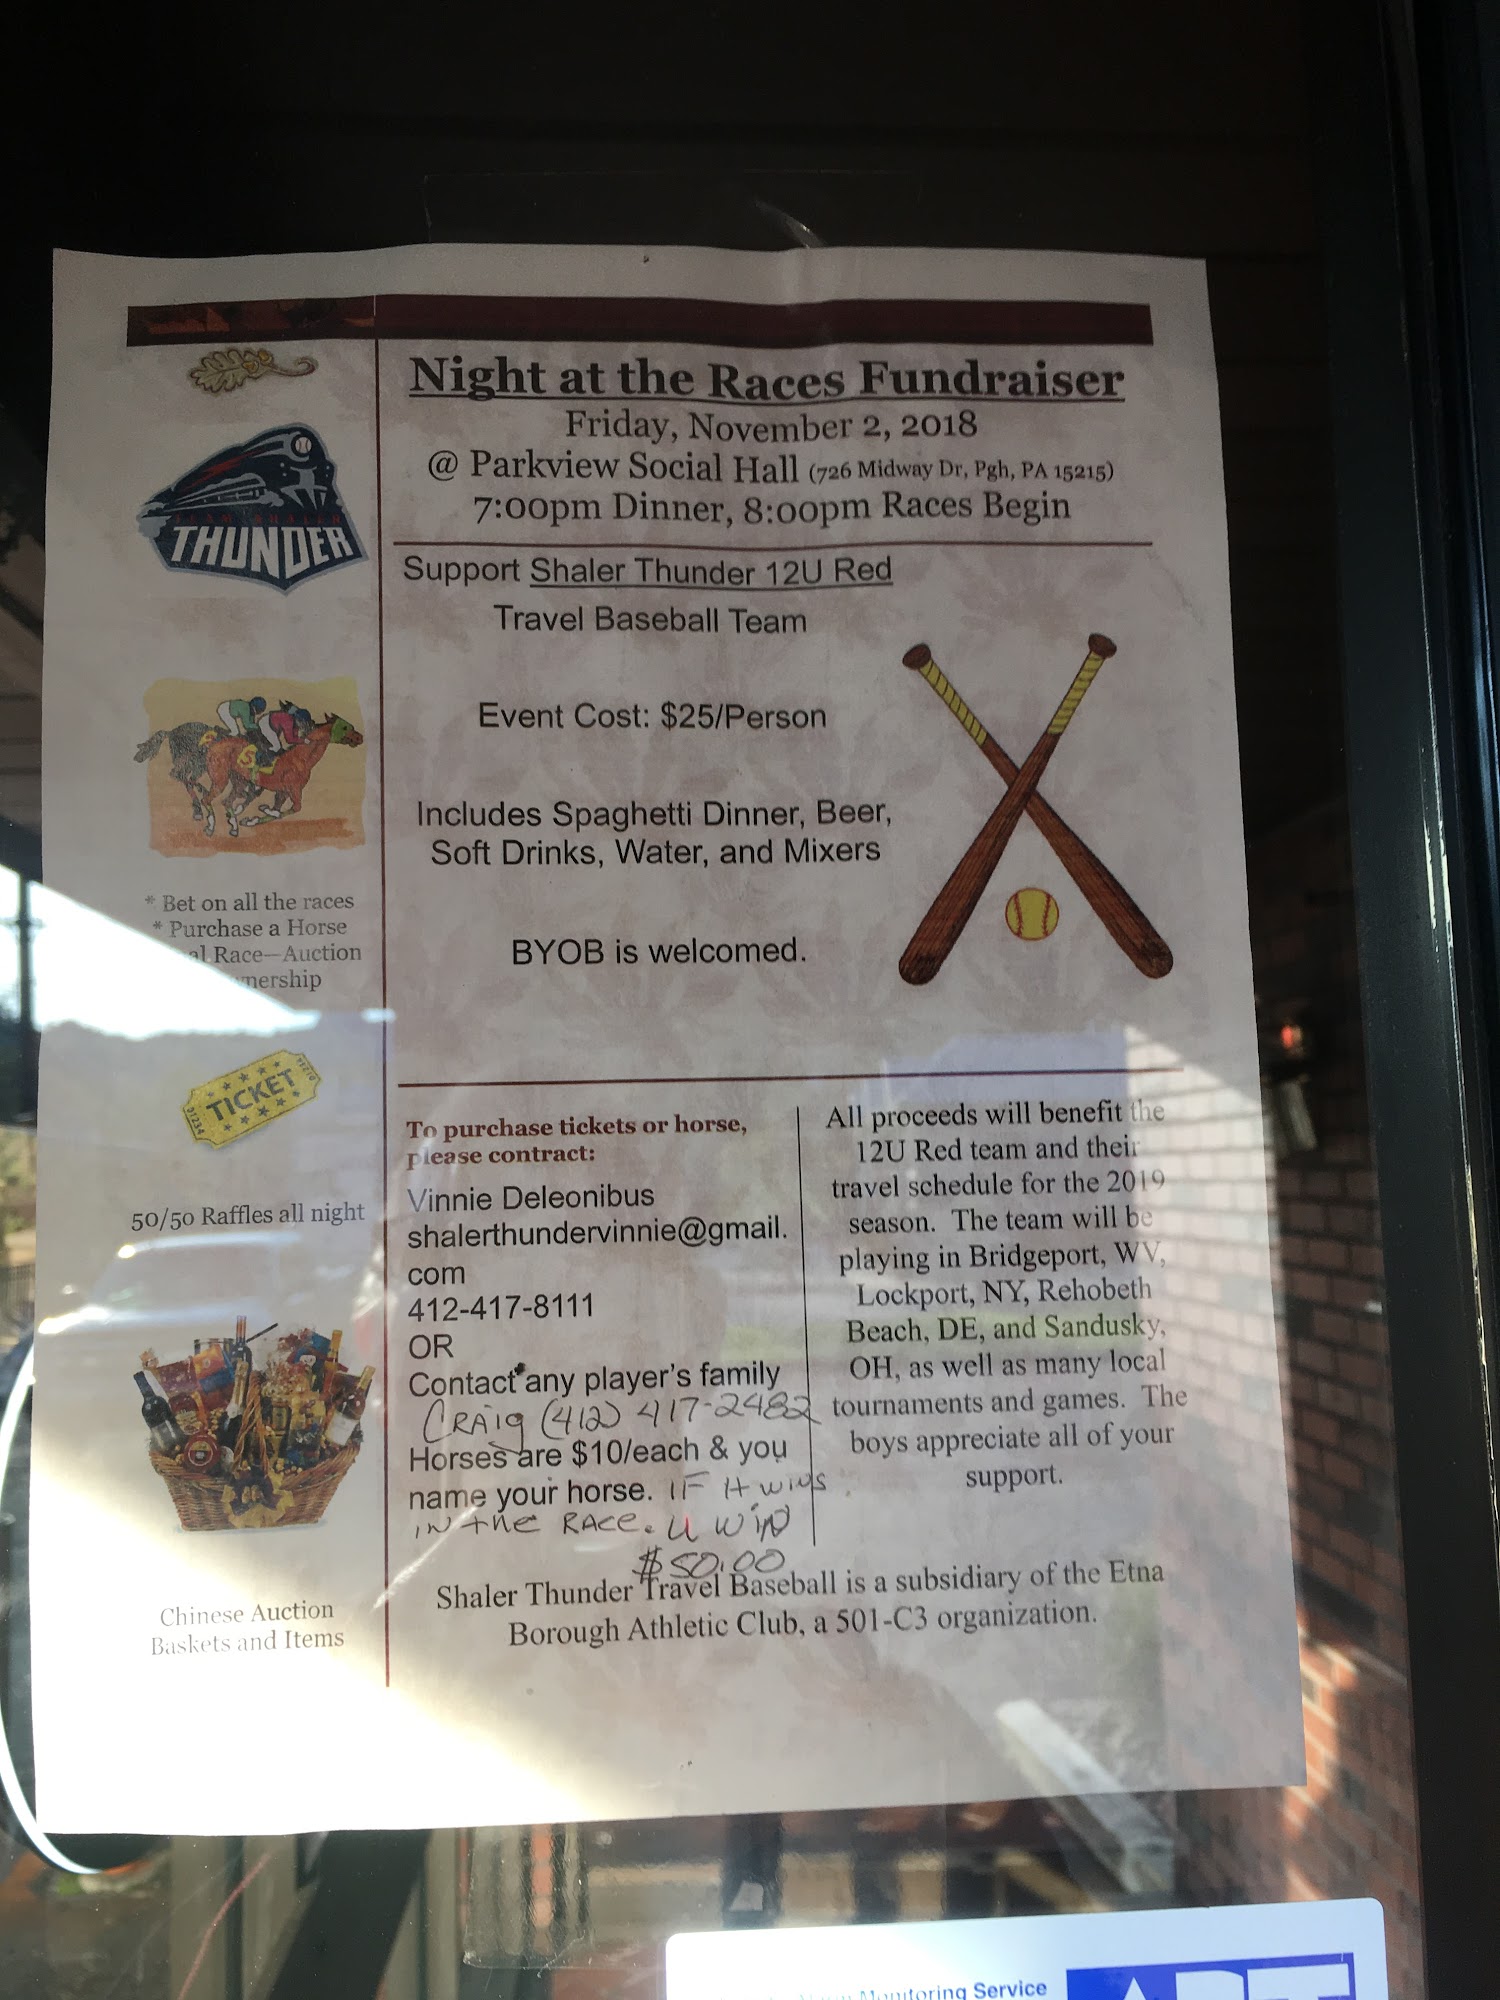 Night at the Races Fundraiser
Friday, November 2, 2018
@ Parkview Social Hall (726 Midway Dr, Pgh, PA 15215)
7:00pm Dinner, 8:00pm Races Begin
THUNDER
* Bet on all the races
* Purchase a Horse
Race—Auction
TICKET
31234
50/50 Raffles all night
Chinese Auction
Baskets and Items
Support Shaler Thunder 12U Red
Travel Baseball Team
Event Cost: $25/Person
Includes Spaghetti Dinner, Beer,
Soft Drinks, Water, and Mixers
BYOB is welcomed.
To purchase tickets or horse,
please contract:
Vinnie Deleonibus
shalerthundervinnie@gmail.
com
412-417-8111
OR
Contact any player's family
CRAig (412) 417-2482
Horses are $10/each & you
name your horse. IF it wins
in the RACE. U WIN
$50.00
All proceeds will benefit the
12U Red team and their
travel schedule for the 2019
season. The team will be
playing in Bridgeport, WV,
Lockport, NY, Rehobeth
Beach, DE, and Sandusky,
OH, as well as many local
tournaments and games. The
boys appreciate all of your
support.
Shaler Thunder Travel Baseball is a subsidiary of the Etna
Borough Athletic Club, a 501-C3 organization.
Monitoring Service